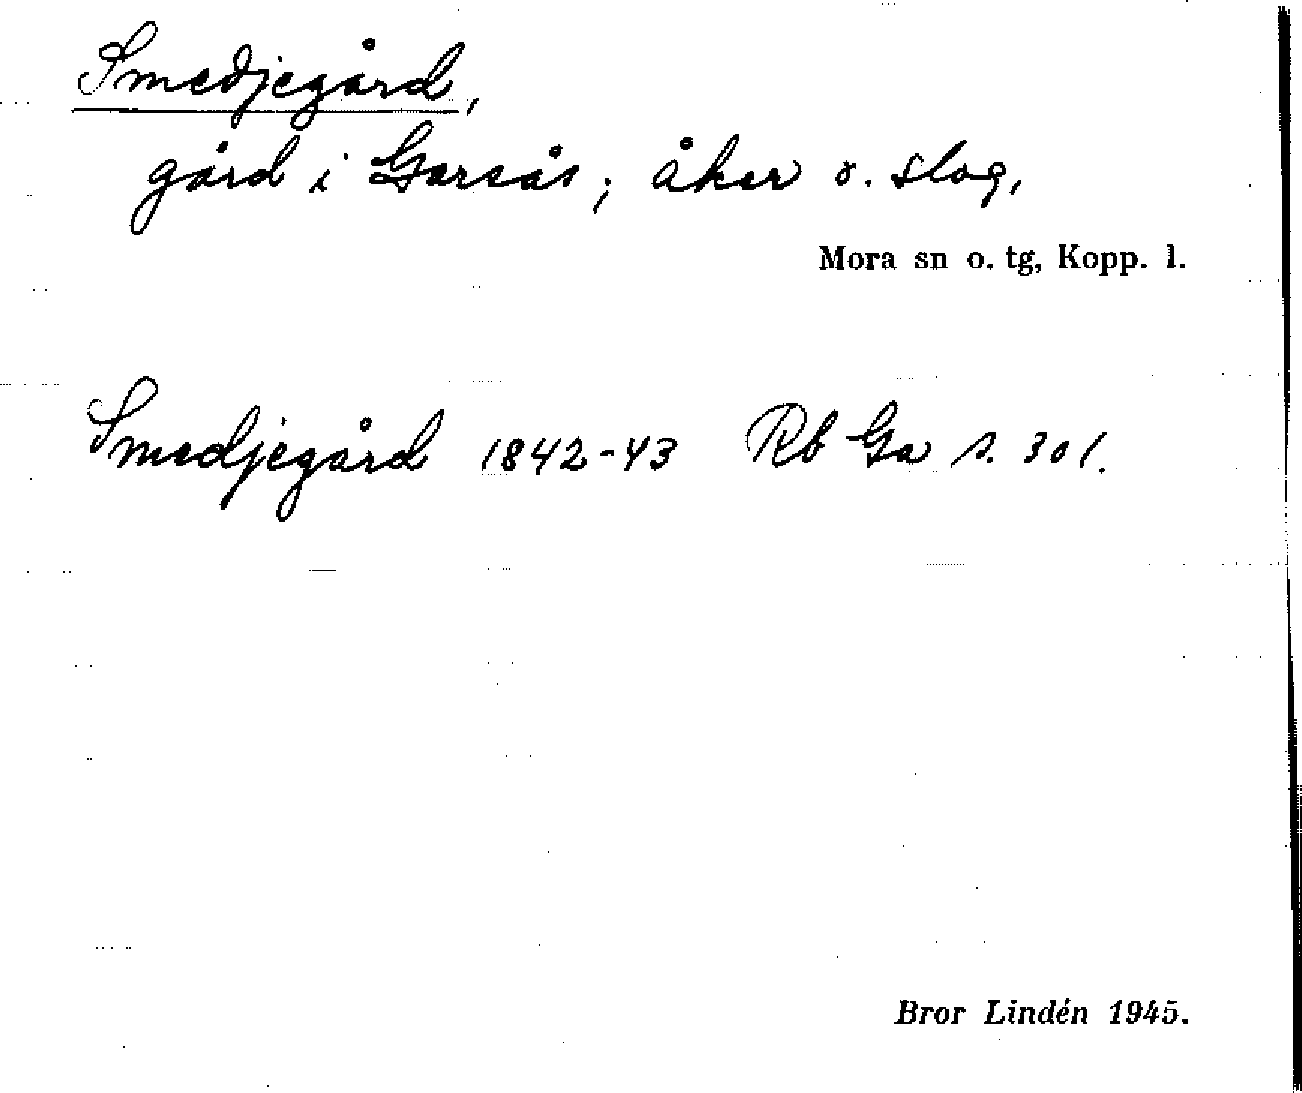 Smedjegård,
gård i Garsås; åker o. slog,
Mora sn o. tg, Kopp. l.
Smedjegård 1842-43 Rb Ga s. 301.
Bror Lindén 1945.